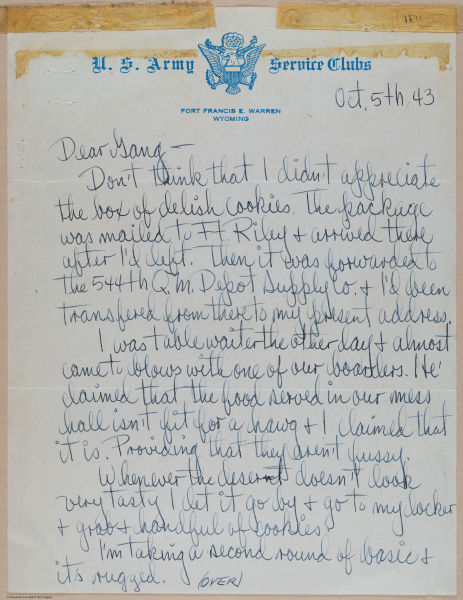 U. S. Army Service Clubs
FORT FRANCIS E. WARREN
WYOMING
Oct, 5th, 43
Dear Gang —
Don't think that I didn't appreciate
the box of delish cookies. The package
was mailed to Ft. Riley & arrived there
after I'd left. Then it was forwarded to
the 544th Q.M. Depot Supply Co. & I'd been
transfered from there to my present address.
I was table waiter the other day & almost
came to blows with one of our boarders. He
claimed that the food served in our mess
hall isn't fit for a hawg & I claimed that
it is. Providing that they aren't fussy.
Whenever the desert doesn't look
very tasty I let it go by & go to my locker
& grab a handful of cookies.
I'm taking a second round of basic &
it's rugged. (OVER)